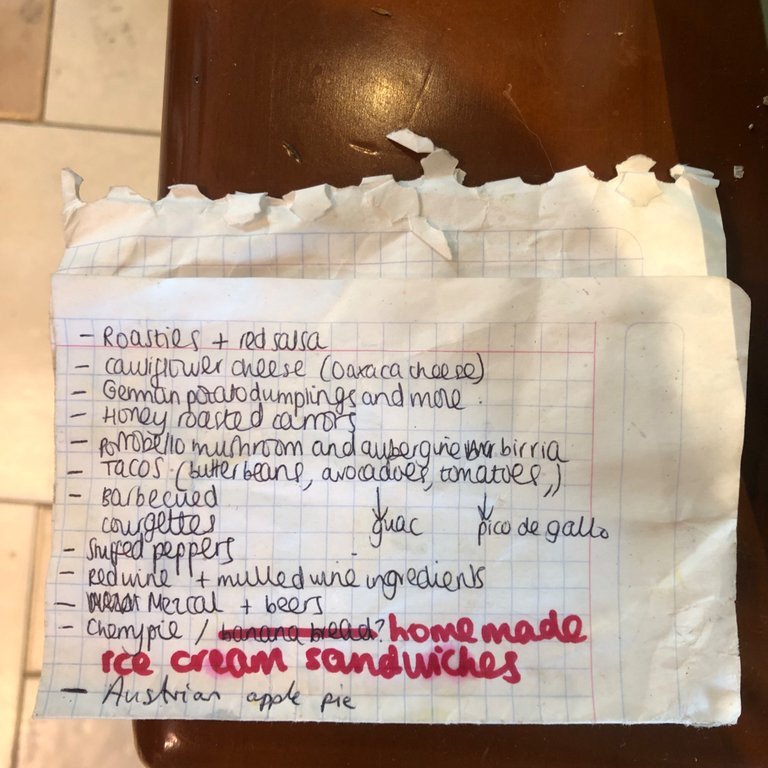 - Roasties + red salsa
- cauliflower cheese (Oaxaca cheese)
- German potato dumplings and more
- Honey roasted carrots
- Portobello mushroom and aubergine birria
- Tacos (butter beans, avocadoes, tomatoes,,)
- Barbecued
courgettes guac pico de gallo
- Stuffed peppers
- red wine + mulled wine ingredients
- Mezcal + beers
- Cherry pie / banana bread? homemade
ice cream sandwiches
- Austrian apple pie